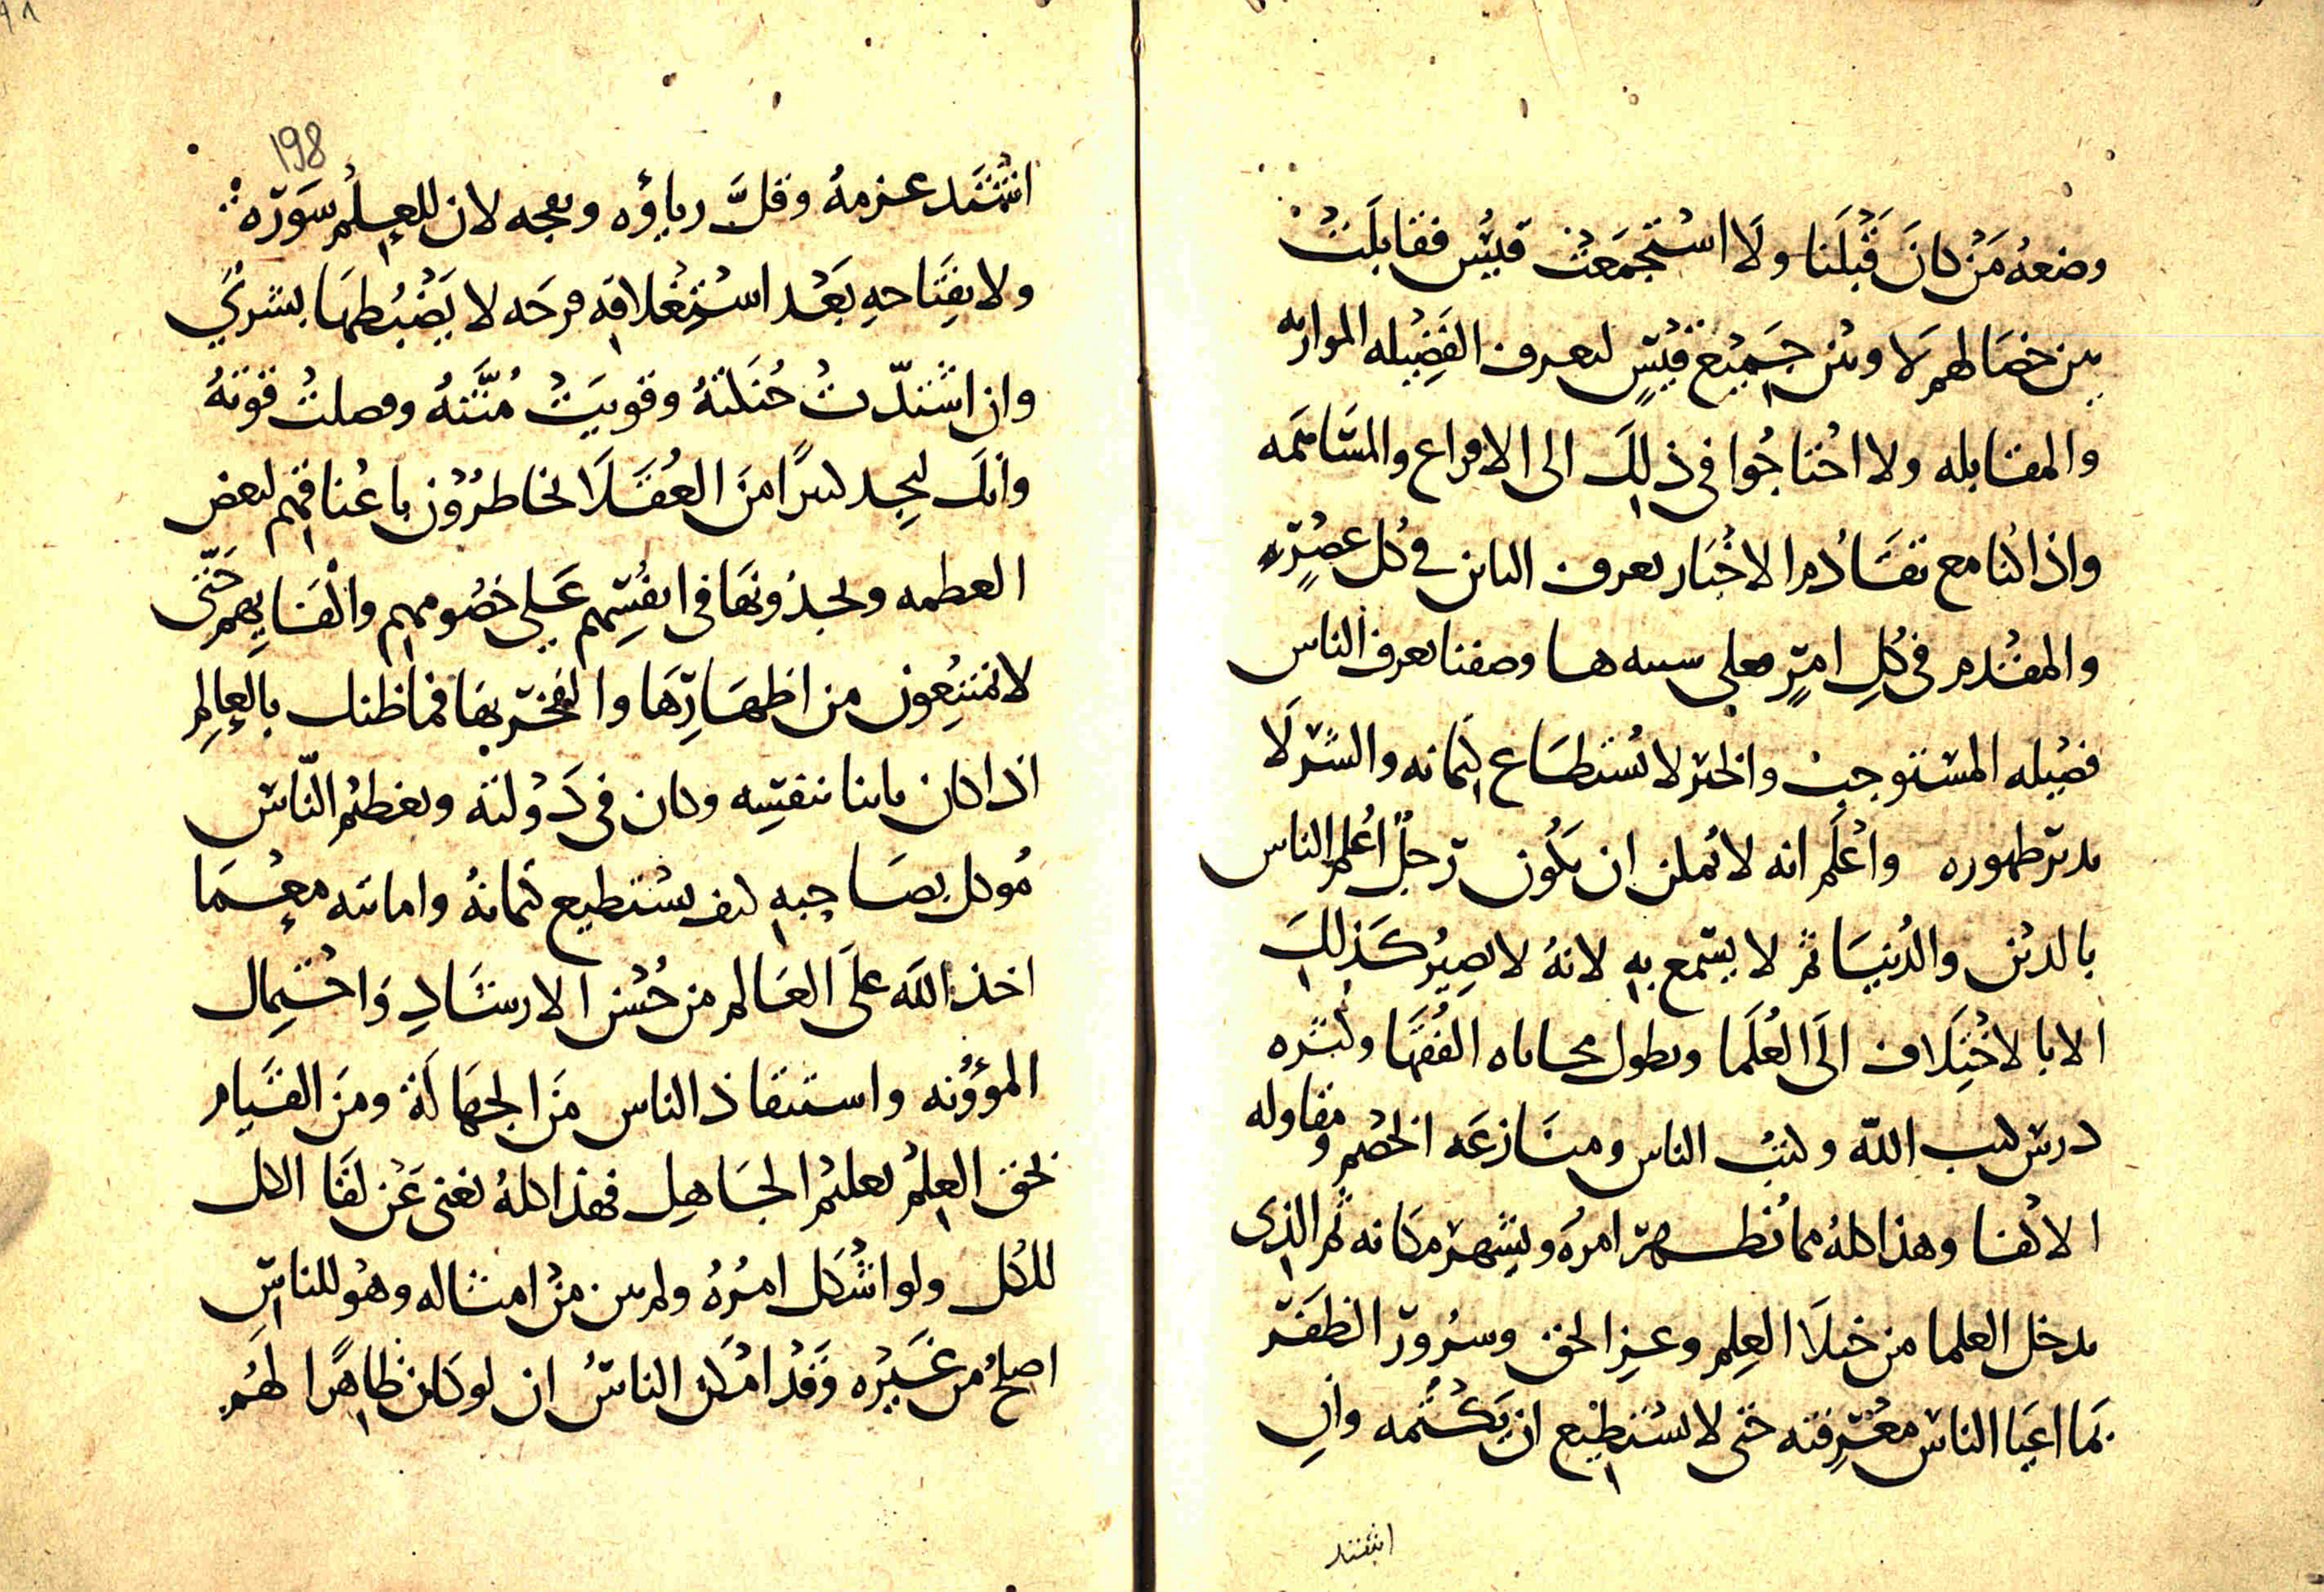 وضعهُ مَنْ كانَ قَبْلَنا ولَا استجمَعَتْ قيسُ فقابلَتْ
بين خصالهم لَا ومن جميع قيسٍ لتعرف الفَضِيله الموازنه
والمقابله ولا احتاجُوا فى ذلِكَ الى الاقراع والمسَاهَمه
واذا كنا مع تقَادُم الاخْبَار نعرف الباين فى كل عصْرٍ
والمقدم فى كلِ امرٍ فعلى سبيلها وصفنا تعرف الناس
فضِيله المستوجب والخبر لا يُستطَاع كتمانه والسّرَ لَا
بد من ظهوره واعْلَم انه لا يُمكن ان يكُون رجلٌ اعْلم الناس
بالدين والدُنيَا ثم لا يُسمع بهِ لانهُ لا يصِيرُ كَذلِكَ
الا بالاختِلَاف الىَ العُلَما وبطول مجاثاه الفُقَهَا وكثره
درس كتب اللّه وكتبُ الناس ومنَازعَه الخصْمِ ومقاوله
الاكْفا وهذا كلهُ مما يُظهر امرَه ويشهر مكانه ثم الذى
يدخل العلما من خيلَا العِلمِ وعِزِ الحق وسرُور الظَفَر
بمَا اعيا الناسَ معْرِفته حتى لا يستطِيع ان يَكْتُمه وانِ
اشتد
198
اشْتَد عزمهُ وقلَّ رياؤه وعجبه لان للعِلْمِ سَوَرَه
ولانفِتَاحهِ بَعْد استِغْلاقه فرحَه لا يَضْبُطهَا بشرىٌ
وان اشتدّتْ حُنكتهُ وقويَتْ مُنَّتهُ وفصلتْ قوتهُ
وانك لتجد كثيرًا منَ العُقَلَا يخاطرُوْن باعْناقهم لبعض
العظمه ويجدُونهَا فى انفُسِهم عَلى خصُومهم واكْفَايهم حَتّى
لا يمتنِعُون من اظهَارِهَا والفخر بهَا فما ظنك بالعِالِمِ
اذا كان باينا بنفسِه وكان فى دَوْلته وتعظيْم النّاس
مُوكل بصَاحبهِ كيف يستطيع كتمانهُ واماتته معْ مَا
اخذ اللّه علَى العَالم من حُسْن الارشَادِ وَاحْتِمال
المؤوُنه واستنقاذ الناس منَ الجهَالَة ومنَ القيَام
بحق العِلْمْ تعليْم الجَاهِل فهذا كلهُ يغنى عَنْ لقَا الكل
للكُل ولو اشْكل امْرُهُ ولم يبن منْ امثاله وهُو للناس
اصلحُ من غَيْره وقَدْ امْكن الناسُ ان لو كانْ ظاهِرًا لهُم